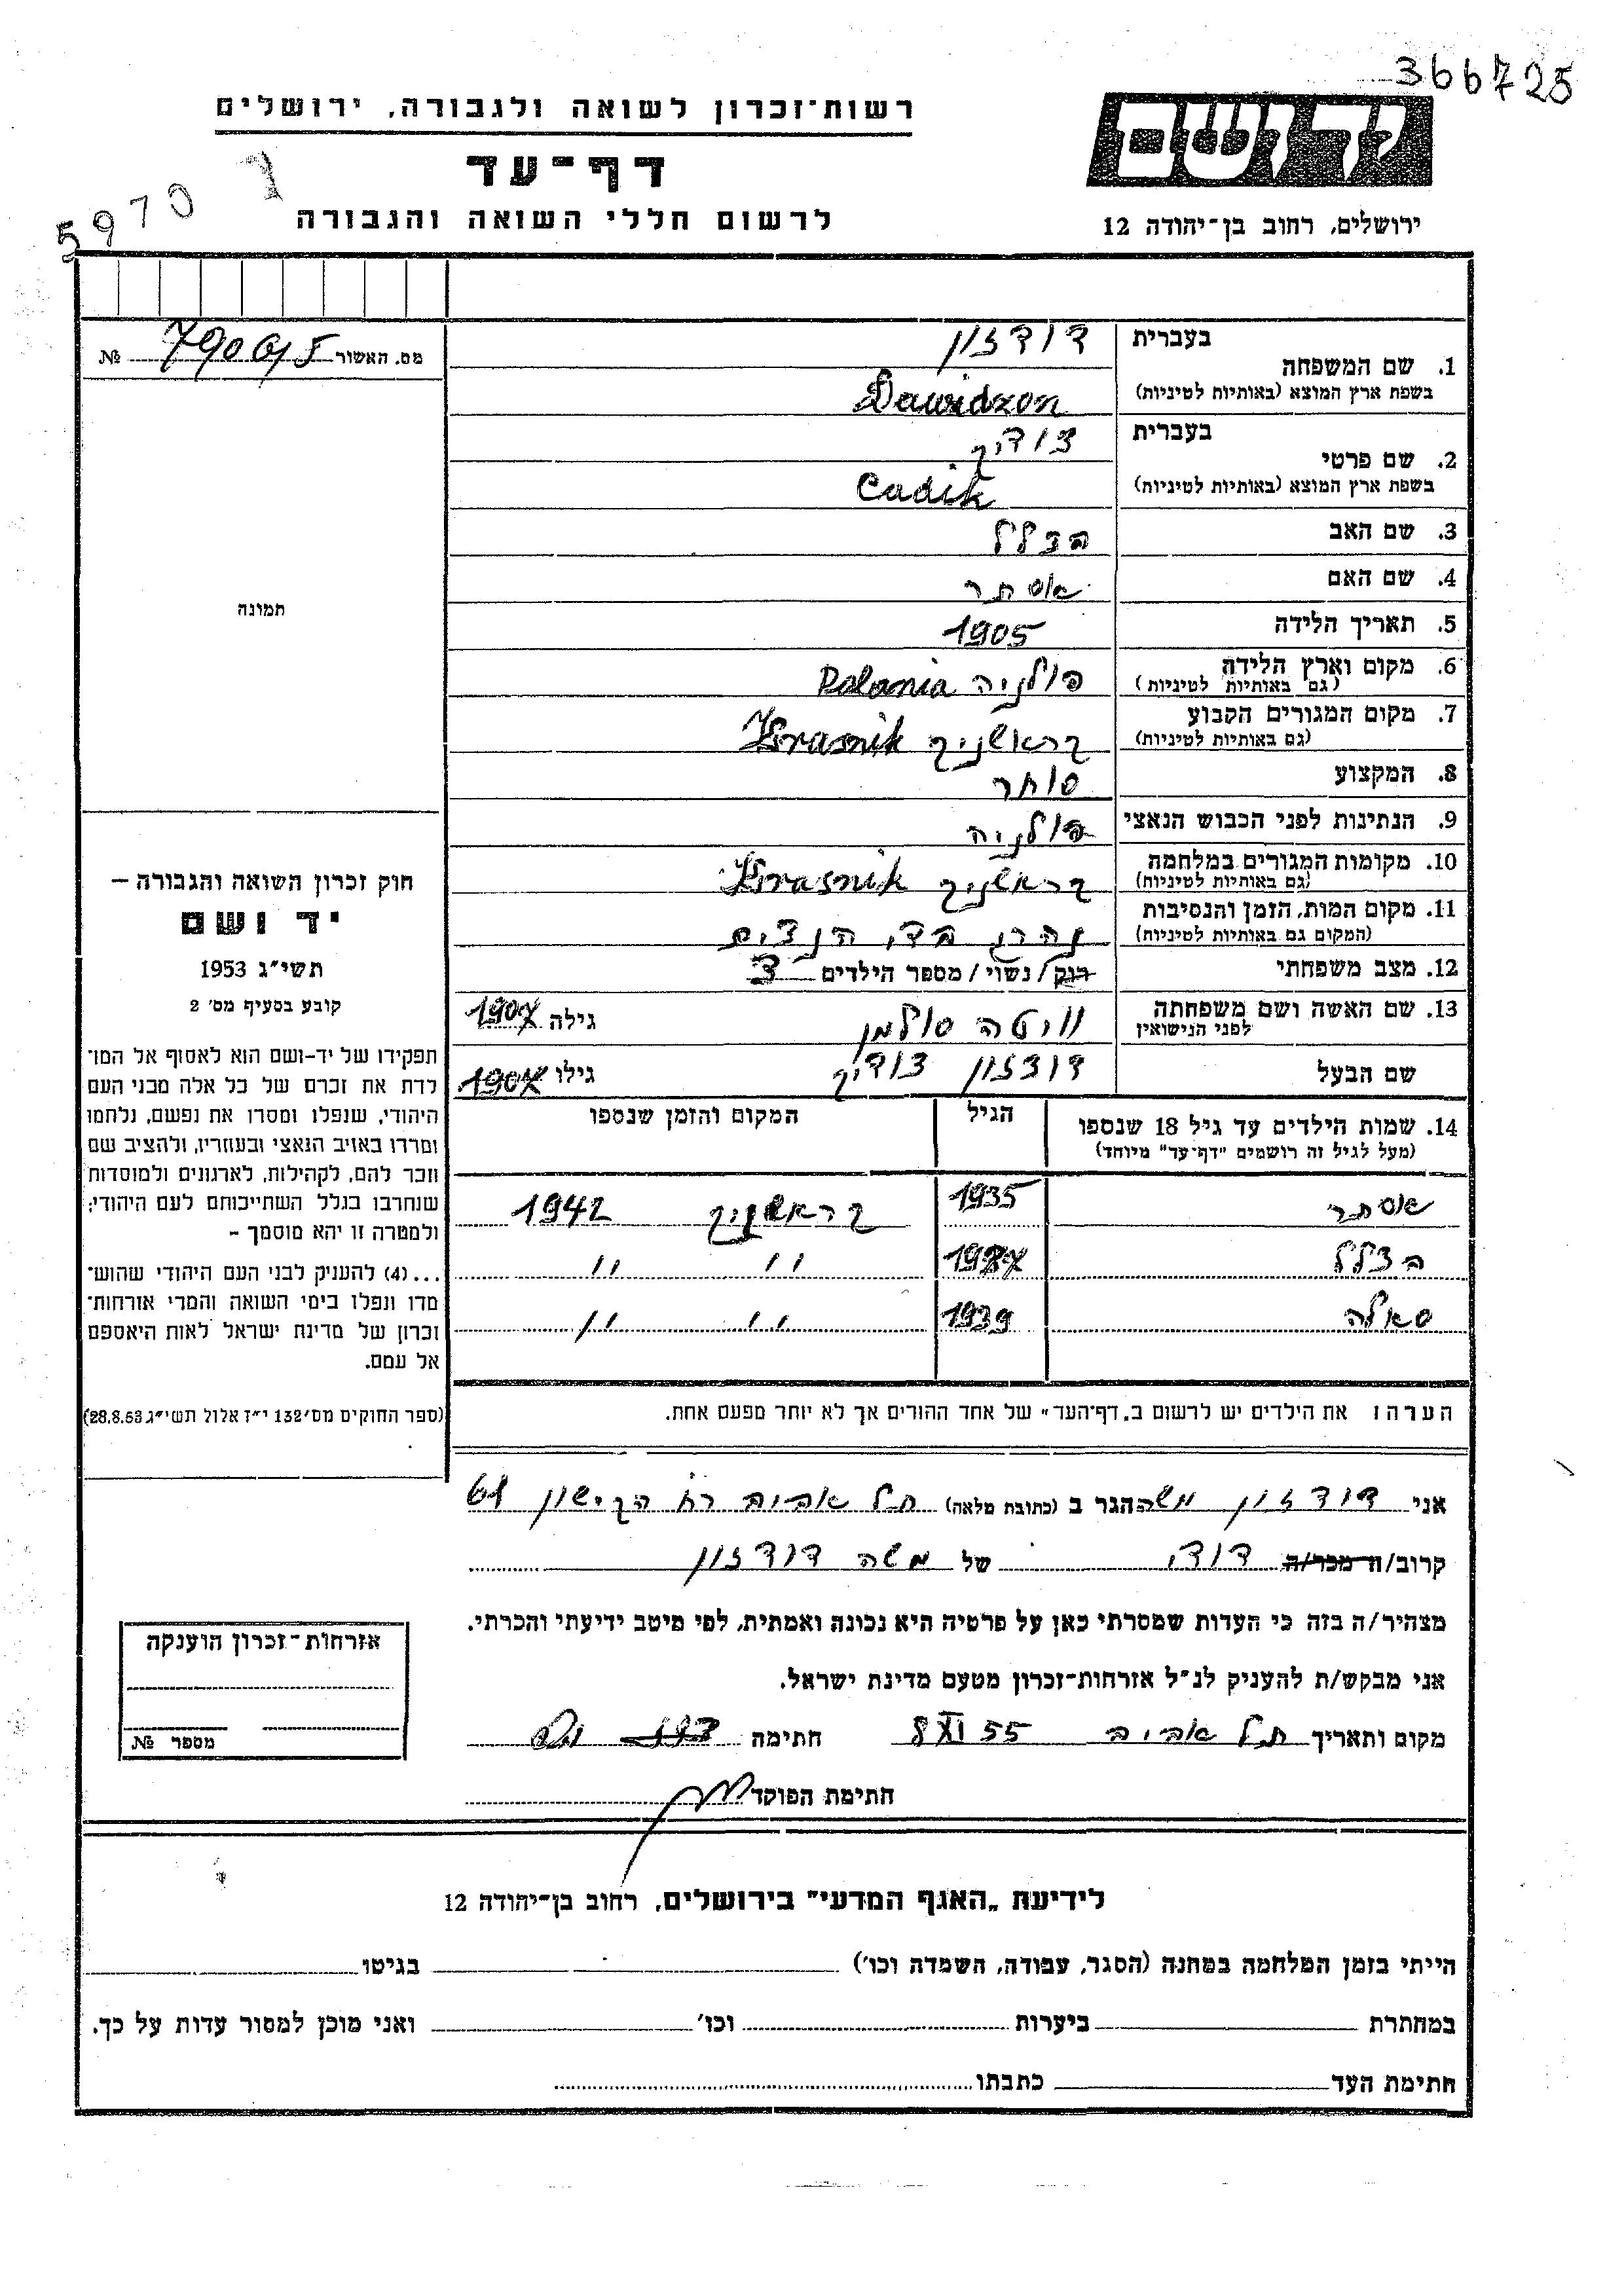 366725
רשות־זכרון לשואה ולגבורה, ירושלים
יד ושם
דף־עד
5970
לרשום חללי השואה והגבורה
ירושלים, רחוב בן־יהודה 12
מס. האשור № 790
בעברית דודזון
1. שם המשפחה
בשפת ארץ המוצא (באותיות לטיניות) Dawidzon
בעברית צודיק
2. שם פרטי
בשפת ארץ המוצא (באותיות לטיניות) Cadik
3. שם האב בצלל
4. שם האם אסתר
תמונה
5. תאריך הלידה 1905
6. מקום וארץ הלידה
(גם באותיות לטיניות) פולניה Polania
7. מקום המגורים הקבוע
(גם באותיות לטיניות) קראשניק Krasnik
8. המקצוע סוחר
9. הנתינות לפני הכבוש הנאצי פולניה
10. מקומות המגורים במלחמה
(גם באותיות לטיניות) קראשניק Krasnik
11. מקום המות, הזמן והנסיבות
(המקום גם באותיות לטיניות) נהרג
12. מצב משפחתי רוק/נשוי/מספר הילדים 3
13. שם האשה ושם משפחתה
לפני הנישואין וויטה סולמן גילה 1907
שם הבעל דודזון צודיק גילו 1907
14. שמות הילדים עד גיל 18 שנספו
(מעל לגיל זה רושמים "דף־עד" מיוחד)
הגיל
המקום והזמן שנספו
אסתר 1935 קראשניק 1942
בצלל 1937 " "
סאלה 1939 " "
הערה: את הילדים יש לרשום ב„דף־העד" של אחד ההורים אך לא יותר מפעם אחת.
חוק זכרון השואה והגבורה –
יד ושם
תשי"ג 1953
קובע בסעיף מס' 2
תפקידו של יד-ושם הוא לאסוף אל המו־
לדת את זכרם של כל אלה מבני העם
היהודי, שנפלו ומסרו את נפשם, נלחמו
ומרדו באויב הנאצי ובעוזריו, ולהציב שם
וזכר להם, לקהילות, לארגונים ולמוסדות
שנחרבו בגלל השתייכותם לעם היהודי;
ולמטרה זו יהא מוסמך –
...(4) להעניק לבני העם היהודי שהוש־
מדו ונפלו בימי השואה והמרי אזרחות־
זכרון של מדינת ישראל לאות היאספם
אל עמם.
(ספר החוקים מס' 132 י"ז אלול תשי"ג 28.8.53)
אני דודזון משה הגר ב (כתובת מלאה) תל אביב רח הקישון 61
קרוב/ה מכר/ה דודי של משה דודזון
מצהיר/ה בזה כי העדות שמסרתי כאן על פרטיה היא נכונה ואמתית, לפי מיטב ידיעתי והכרתי.
אני מבקש/ת להעניק לנ"ל אזרחות־זכרון מטעם מדינת ישראל.
מקום ותאריך תל אביב 8 XI 55 חתימה
חתימת הפוקד
אזרחות־זכרון הוענקה
מספר №
לידיעת „האגף המדעי" בירושלים, רחוב בן־יהודה 12
הייתי בזמן המלחמה במחנה (הסגר, עבודה, השמדה וכו') בגיטו
במחתרת ביערות וכו' ואני מוכן למסור עדות על כך.
חתימת העד כתבתו